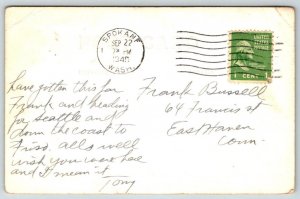 SPOKANE
SEP 22
PM
1946
WASH.
UNITED STATES
POSTAGE
1 CENT
have gotten this far
Frank and heading
for seattle and
down the coast to
Frisco, alls well
wish you were here
and I mean it
Tony
Frank Bussell
64 Francis st
East Haven
Conn.